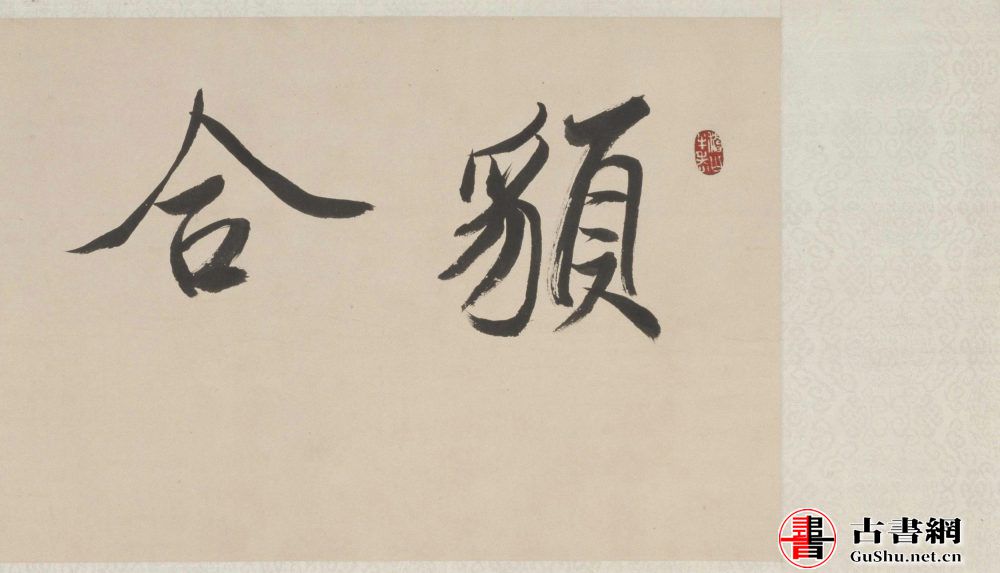 䫉合
書
古書網
GuShu.net.cn